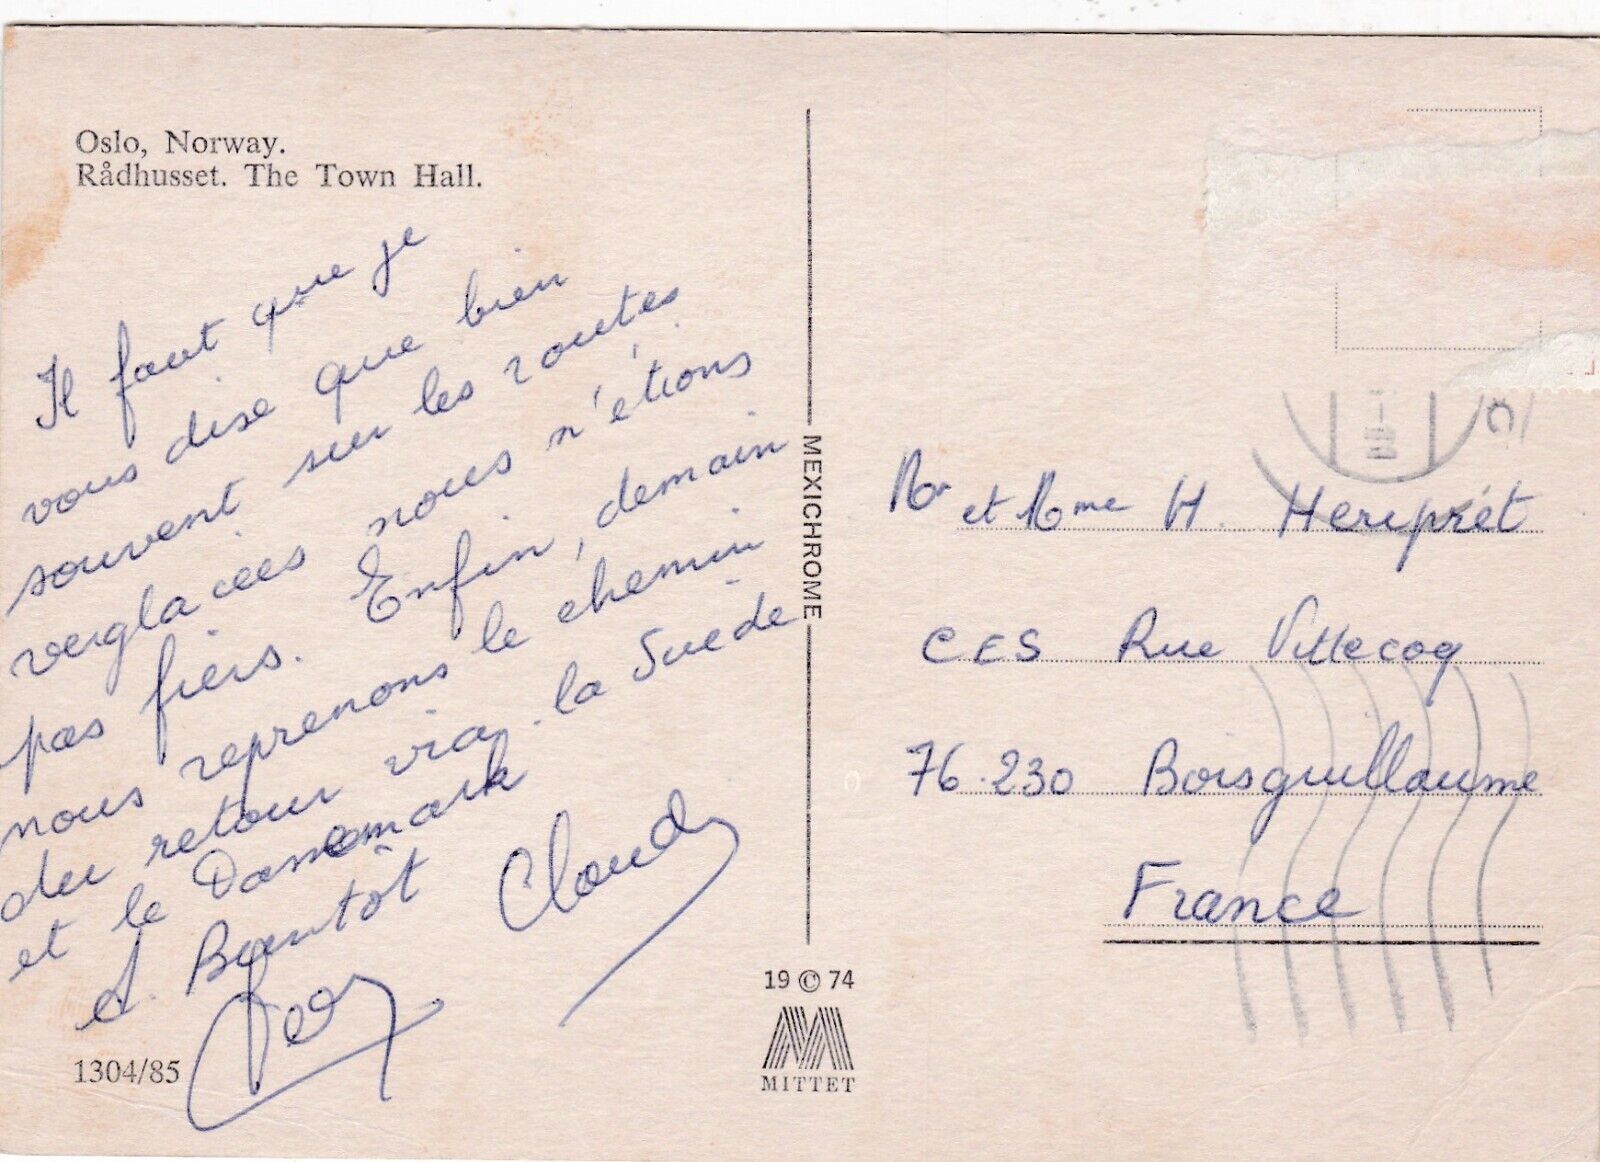 Oslo, Norway.
Rådhusset. The Town Hall.
Il faut que je
vous dise que bien
souvent sur les routes
verglacées nous n'étions
pas fiers. Enfin, demain
nous reprenons le chemin
du retour via la Suède
et le Danemark
A Bientôt Claude
1304/85
MEXICHROME
19 © 74
MITTET
Mr et Mme H. Heriprét
CES Rue Villecoq
76.230 Boisguillaume
France